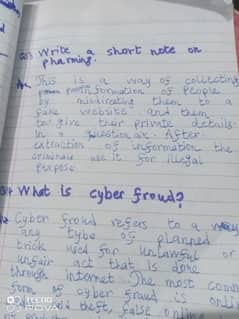 Q3 Write a short note on
pharming.
A This is a way of collecting
information of people
by misdirecting them to a
fake website and them
to give their private details
in a questionair. After
extraction of information the
criminals use it for illegal
perpose
Q4 What is cyber froud?
Cyber froud refers to a
any tybe of planned
trick used for unlawful or
unfair act that is done
through internet The most comm
form of cyber fraud is onli
theft, false onlin